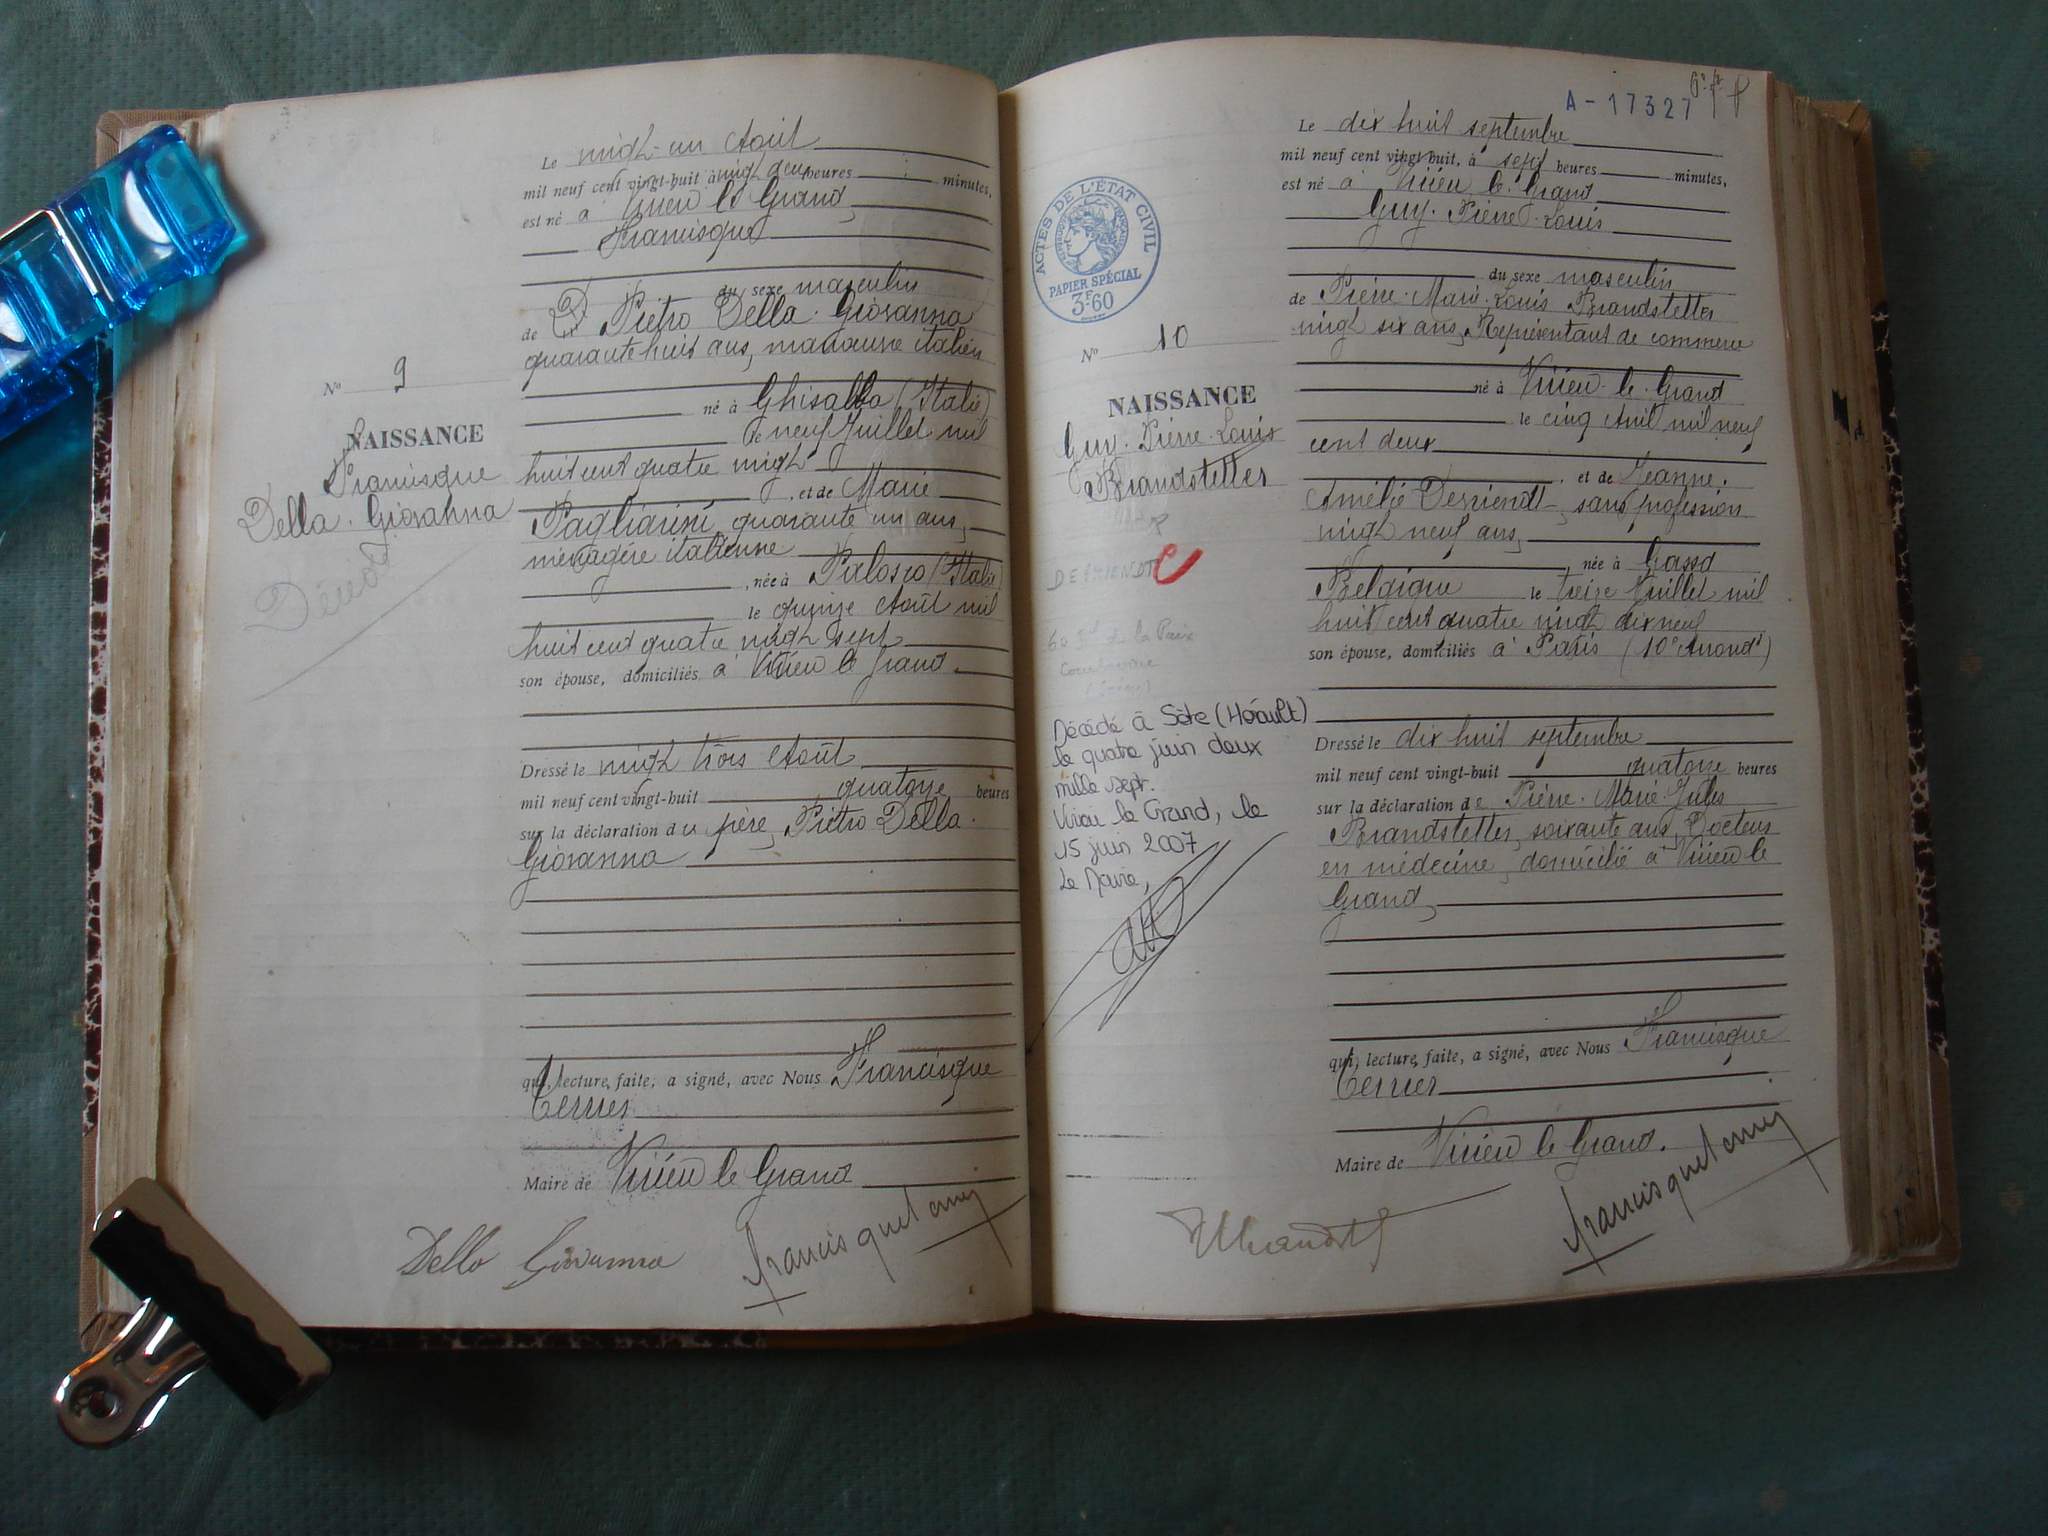 Le vingt-un Août
mil neuf cent vingt-huit à vingt deux heures minutes,
est né à Virieu le Grand
Francisque
du sexe masculin
de Pietro Della Giovanna
quarante huit ans, manœuvre italien
né à Ghisalba (Italie)
le neuf Juillet mil
huit cent quatre vingt
et de Marie
Pagliarini, quarante un ans,
ménagère italienne
, née à Palosco (Italie)
le quinze Août mil
huit cent quatre vingt sept
son épouse, domiciliés à Virieu le Grand
Dressé le vingt trois Août
mil neuf cent vingt-huit quatorze heures
sur la déclaration du père, Pietro Della
Giovanna
qui, lecture faite, a signé, avec Nous Francisque
Terrier
Maire de Virieu le Grand
Della Giovanna
N° 9
NAISSANCE
Francisque
Della Giovanna
A-17327
Le dix huit septembre
mil neuf cent vingt huit, à sept heures minutes,
est né à Virieu le Grand
Guy Pierre Louis
du sexe masculin
de Pierre Marie Louis Brandstetter
vingt six ans, Représentant de commerce
né à Virieu le Grand
le cinq Avril mil neuf
cent deux
, et de Jeanne
Amélie Desriendt, sans profession
vingt neuf ans,
, née à Gand
Belgique le treize Juillet mil
huit cent quatre vingt dix neuf
son épouse, domiciliés à Paris (10e Arrondt)
Dressé le dix huit septembre
mil neuf cent vingt-huit quatorze heures
sur la déclaration de Pierre Marie Jules
Brandstetter, soixante ans, Docteur
en médecine, domicilié à Virieu le
Grand,
qui, lecture faite, a signé, avec Nous Francisque
Terrier
Maire de Virieu le Grand.
ACTES DE L'ÉTAT CIVIL
PAPIER SPÉCIAL
3F60
N° 10
NAISSANCE
Guy Pierre Louis
Brandstetter
60 Bd de la Paix
Décédé à Sète (Hérault)
le quatre juin deux
mille sept.
Virieu le Grand, le
15 juin 2007
Le Maire,